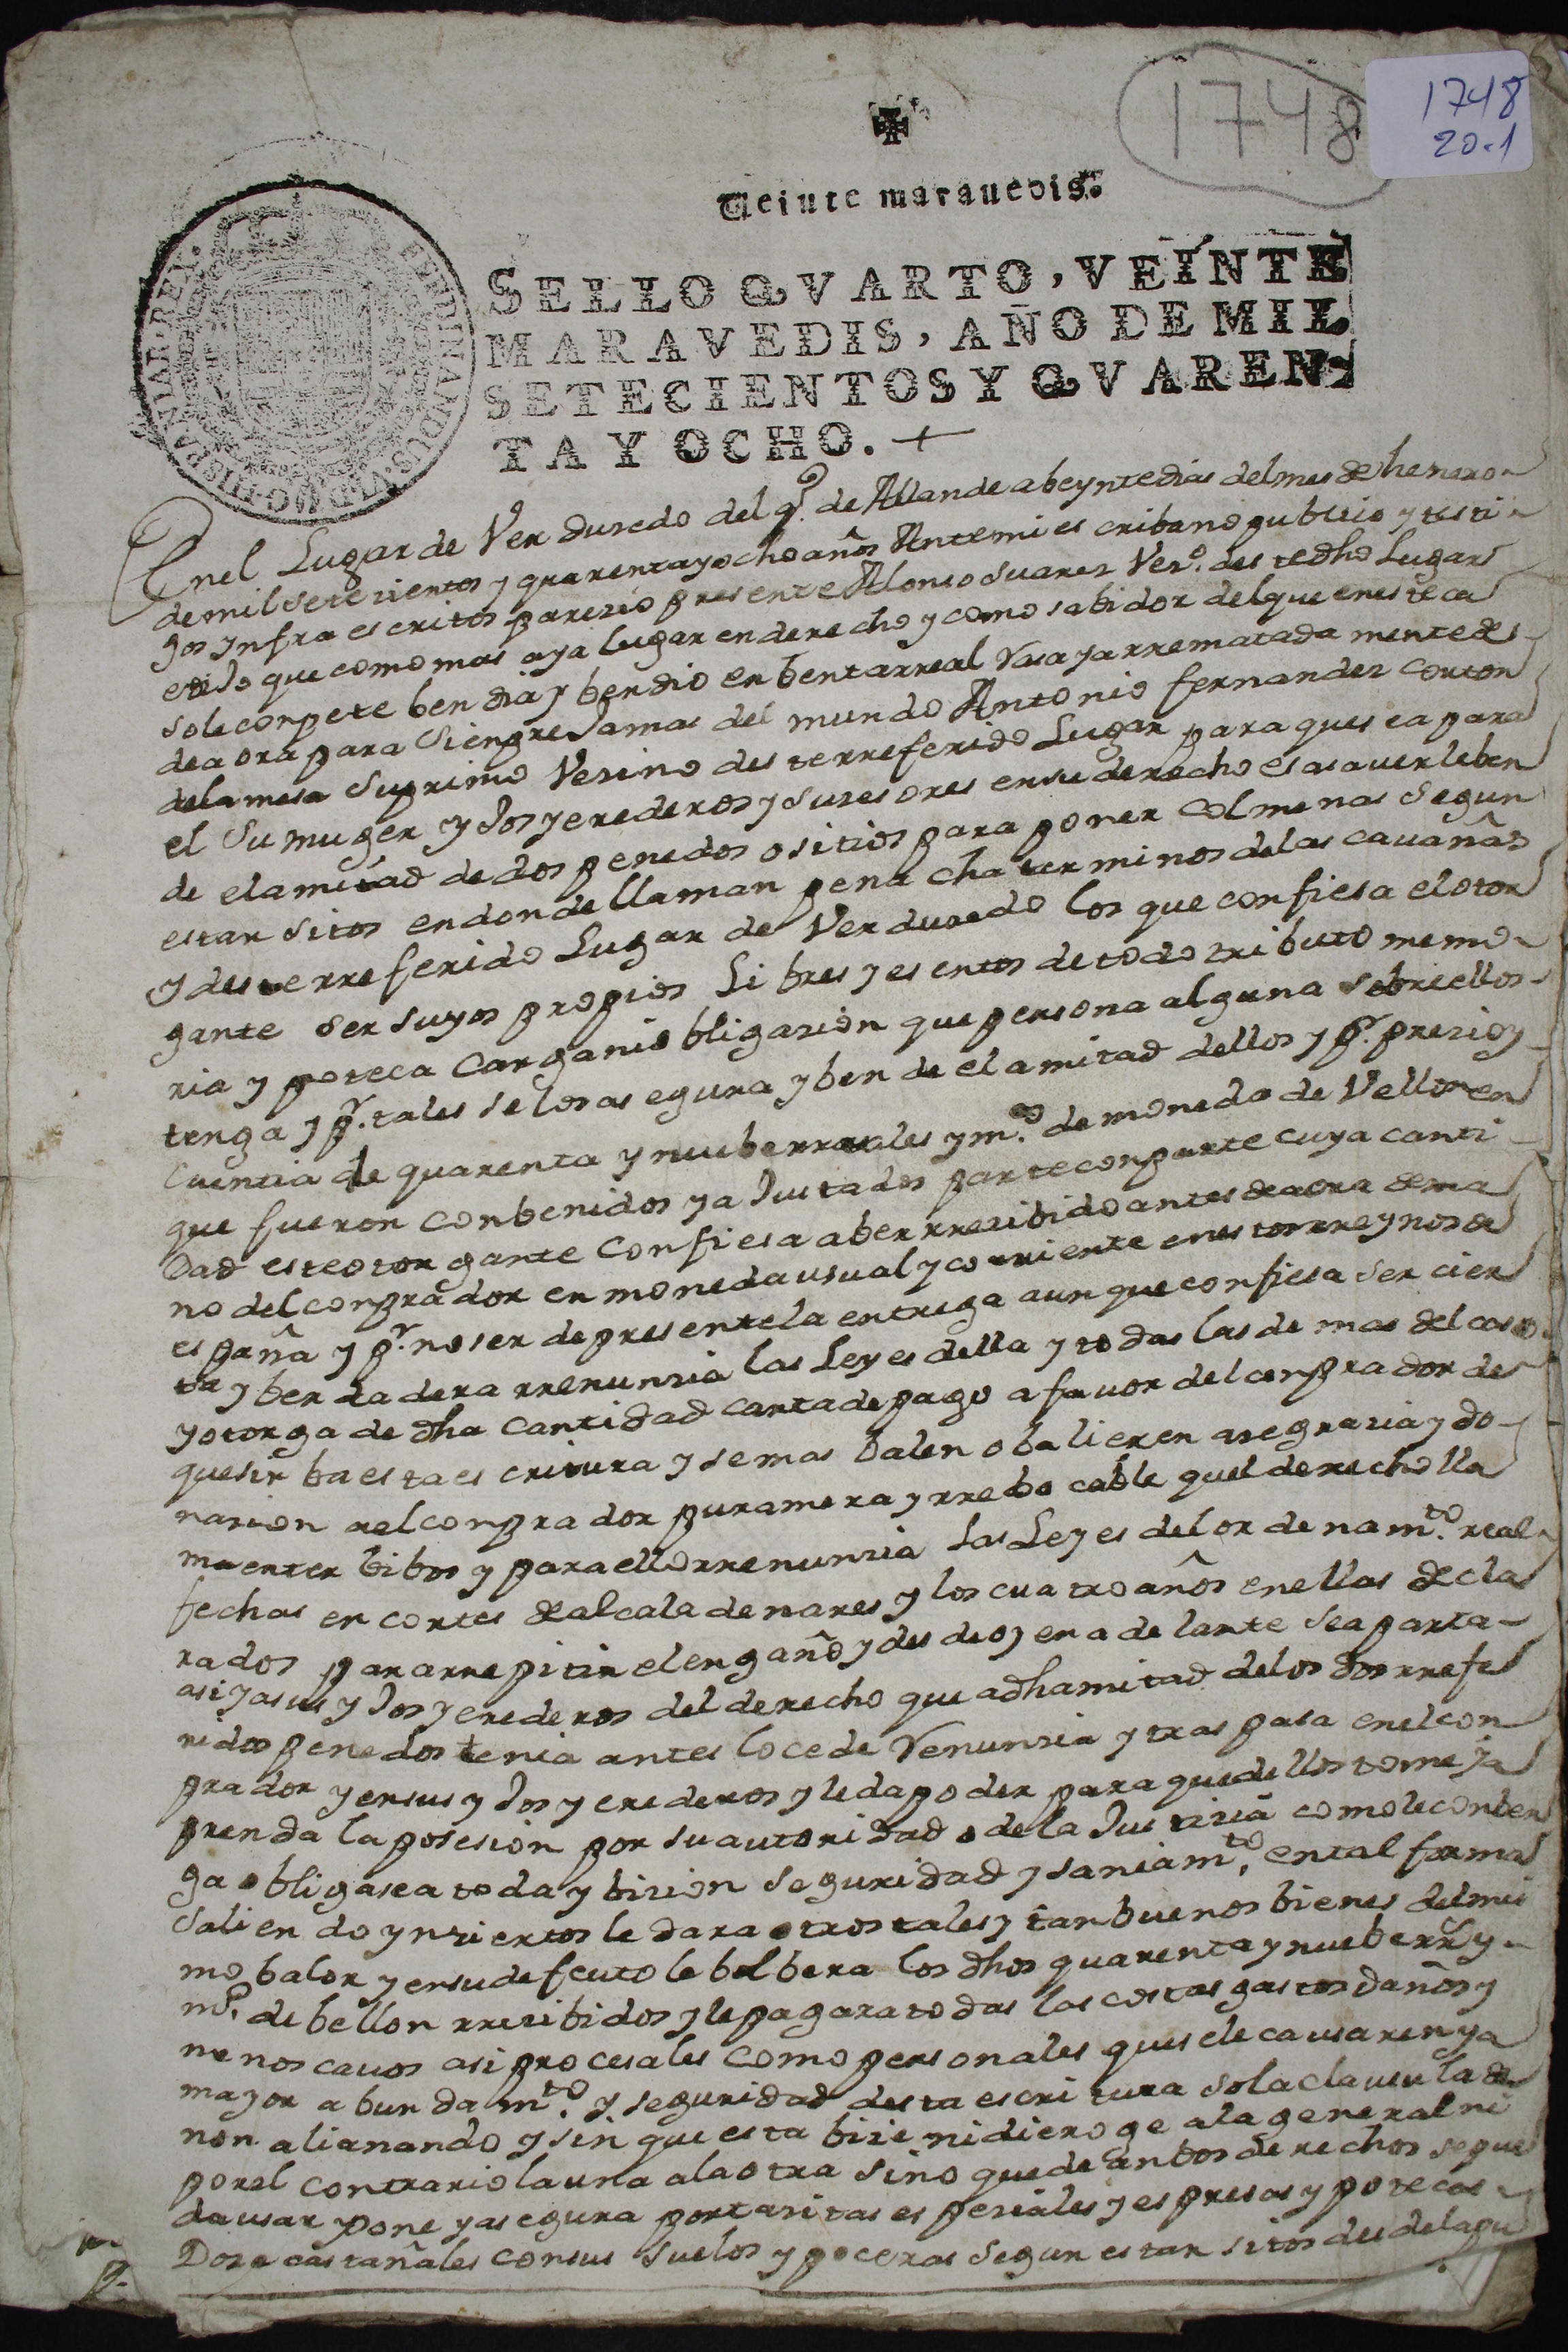 1748
1748
20-1
Veinte marauedis.
SELLO QVARTO, VEINTE
MARAVEDIS, AÑO DE MIL
SETECIENTOS Y QVAREN-
TA Y OCHO.
FERDINANDUS VI D G HISPANIAR REX
En el Lugar de Verduredo del q.º de Allande abeynte dias del mes de henero
de mil setezientos y quarenta y ocho años Ante mi escribano publico y testi
gos ynfra escritos parezio presente Alonso Suarez Vezº. deste dho Lugar
e dijo que como mas aya lugar en derecho y como sabidor del que en este ca
so le conpete bendia y bendio en benta rreal Vasa ya rrematadamente des
de aora para sienpre Jamas del mundo Antonio fernandez couton
de la mesa su primo Vezino deste rreferido Lugar para que sea para
el su muger yJos yerederos y suzesores en su derecho es asauer le ben
de elamitad de dos penedos o sitios para poner colmenas segun
estan sitos en donde llaman pena cha terminos de las cauañas
y deste rreferido Lugar de Verduredo los que confiesa el otor
gante ser suyos propios Libres y esentos de todo tributo memo
ria ypoteca carga ni obligazion que persona alguna sobre ellos
tenga y pr. tales se los asegura y bende elamitad dellos y pr. prezio y
Cuentia de quarenta y nuebe rreales y mº. de moneda de Vellon en
que fueron conbenidos ya Justados parte con parte cuya canti
Dad este otorgante confiesa aber rrezibido antes de aora de ma
no del conprador en moneda usual y corriente en estos rreynos de
españa y pr. no ser de presente la entrega aunque confiesa ser cier
ta y berdadera rrenunzia las Leyes della y todas las demas del caso
y otorga de dha cantidad carta de pago a fauor del conprador des
que sirba esta escritura y se mas balen o balieren aze grazia y do
nazion a el conprador pura mera y rrebocable quel derecho lla
ma enter bibos y para ello rrenunzia las Leyes del ordenamto. real
fechas en cortes de alcala de nares y los cuatro años en ellas decla
rados para rrepitir el engaño y desde oy en adelante se aparta
asi y asus yJos yerederos del derecho que a dha mitad de los dos rrefe
ridos penedos tenia antes lo cede Renunzia y traspasa en el con
prador y en sus yJos yerederos y le da poder para que dellos tome ya
prenda la posesion por su autoridad o de la Justizia como le conben
ga obligase a toda ybizion seguridad y saniamto. en tal forma
saliendo ynziertos le dara otros tales y tan buenos bienes del mis
mo balor y en su defeuto le bolbera los dhos quarenta y nuebe rrs y
mº. de bellon rrezibidos y le pagara todas las costas gastos daños y
menoscauos asi procesales como personales que se le causaren ya
mayor abundamto. y seguridad desta escritura so la clausula de
non alianando y sin que esta bizie ni dieroge a la general ni
por el contrario la una a la otra sino que de anbos derechos se pue
da usar ypone ya segura por tazitas espeziales y espresas ypotecas
Doze castañales con sus suelos y poceras segun estan sitos desde la pu